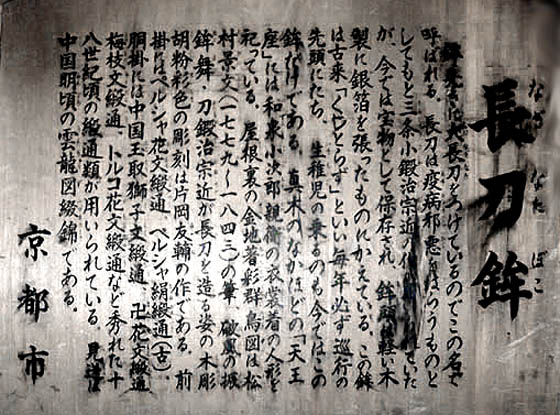 なぎなたほこ
長刀鉾
鉾先きに大長刀をつけているのでこの名で
呼ばれる。長刀は疫病邪悪をはらうものと
してもと三条小鍛冶宗近の作 ていた
が、今では宝物として保存され、鉾頭は軽い木
製に銀箔を張ったものにかえている。この鉾
は古来「くじとらず」といい毎年必ず巡行の
先頭にたち、生稚児の乗るのも今ではこの
鉾だけである。真木のなかほどの「天王
座」には和泉小次郎親衡の衣裳着の人形を
祀っている。屋根裏の金地著彩群鳥図は松
村景文(一七七九〜一八四三)の筆、破風の
鉾舞・刀鍛冶宗近が長刀を造る姿の木彫
胡粉彩色の彫刻は片岡友輔の作である。前
掛にはペルシャ花文緞通、ペルシャ絹緞通(古)、
胴掛には中国玉取獅子文緞通、卍花文緞通
梅枝文緞通、トルコ花文緞通など秀れた十
八世紀頃の緞通類が用いられている。見送は
中国明頃の雲龍図綴錦である。
京都市